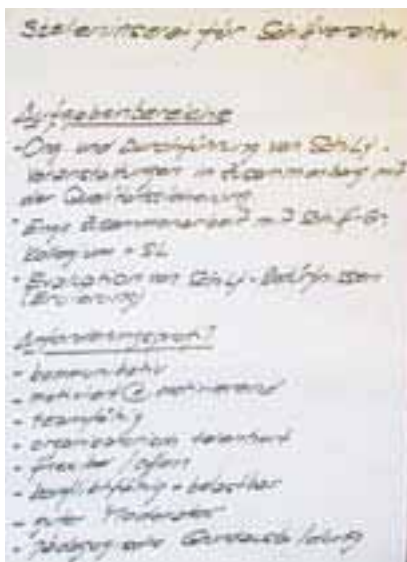 Stelleninserat für Schilfverantw.
Aufgabenbereiche
- Org. und Durchführung von Schilf-
Veranstaltungen in Zusammenhang mit
der Qualitätssteuerung
- Enge Zusammenarbeit mit Schilf-Gr.
Kollegium + SL
- Evaluation von Schilf-Bedürfnissen
(Eruierung)
Anforderungsprofil
- kommunikativ
- motiviert motivierend
- teamfähig
- organisatorisch talentiert
- flexibel / offen
- konfliktfähig + belastbar
- guter Moderator
- pädagogische Grundausbildung